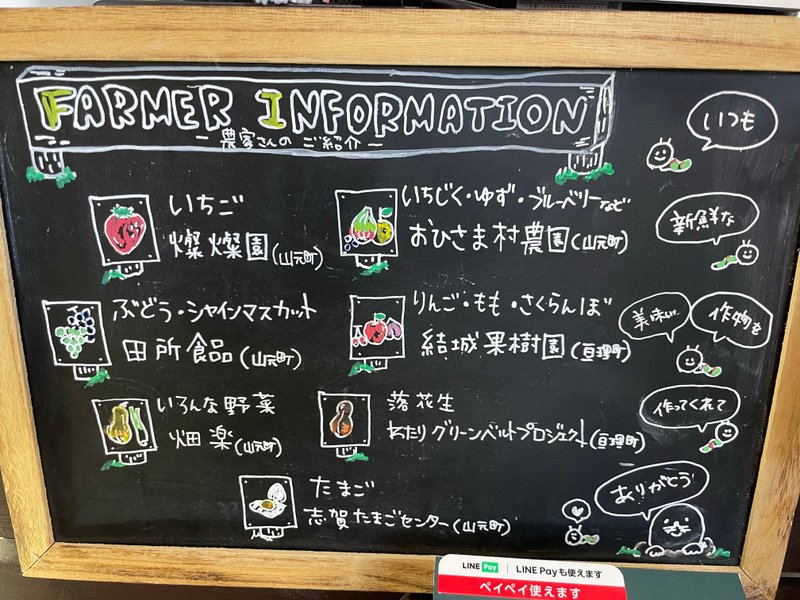 FARMER INFORMATION
－農家さんのご紹介－
いちご
燦燦園(山元町)
いちじく・ゆず・ブルーベリーなど
おひさま村農園(山元町)
ぶどう・シャインマスカット
田所食品(山元町)
りんご・もも・さくらんぼ
結城果樹園(亘理町)
いろんな野菜
畑楽(山元町)
落花生
わたりグリーンベルトプロジェクト(亘理町)
たまご
志賀たまごセンター(山元町)
いつも
新鮮な
美味しい
作物を
作ってくれて
ありがとう
LINE Pay | LINE Payも使えます
ペイペイ使えます